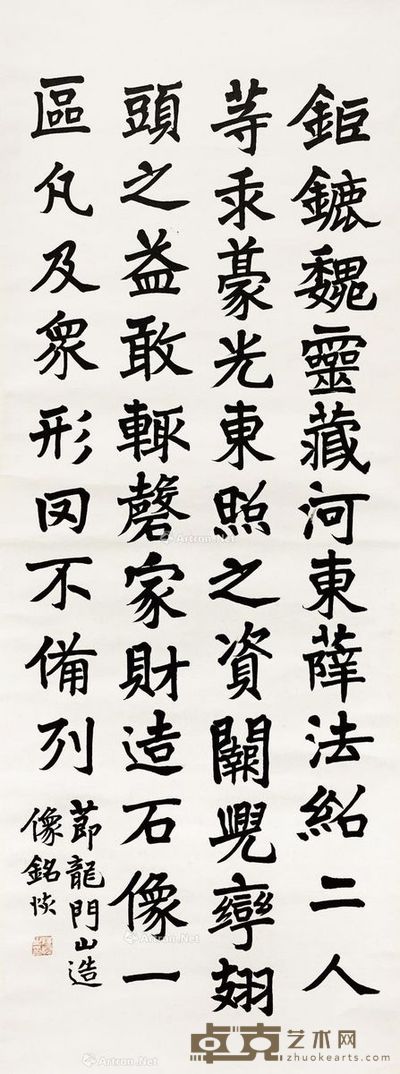 鉅鏕魏靈藏河東薛法紹二人
等求豪光東照之資闕兜率翅
頭之益敢輒罄家財造石像一
區凡及衆形罔不備列
節龍門山造
像銘
Artron.Net
Artron.Net
Artron.Net
卓克艺术网
zhuokearts.com